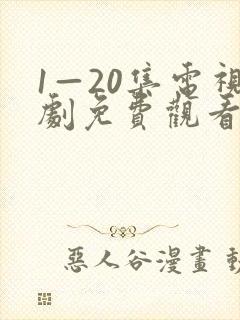 1—20集電視
劇免費觀看
惡人谷漫畫